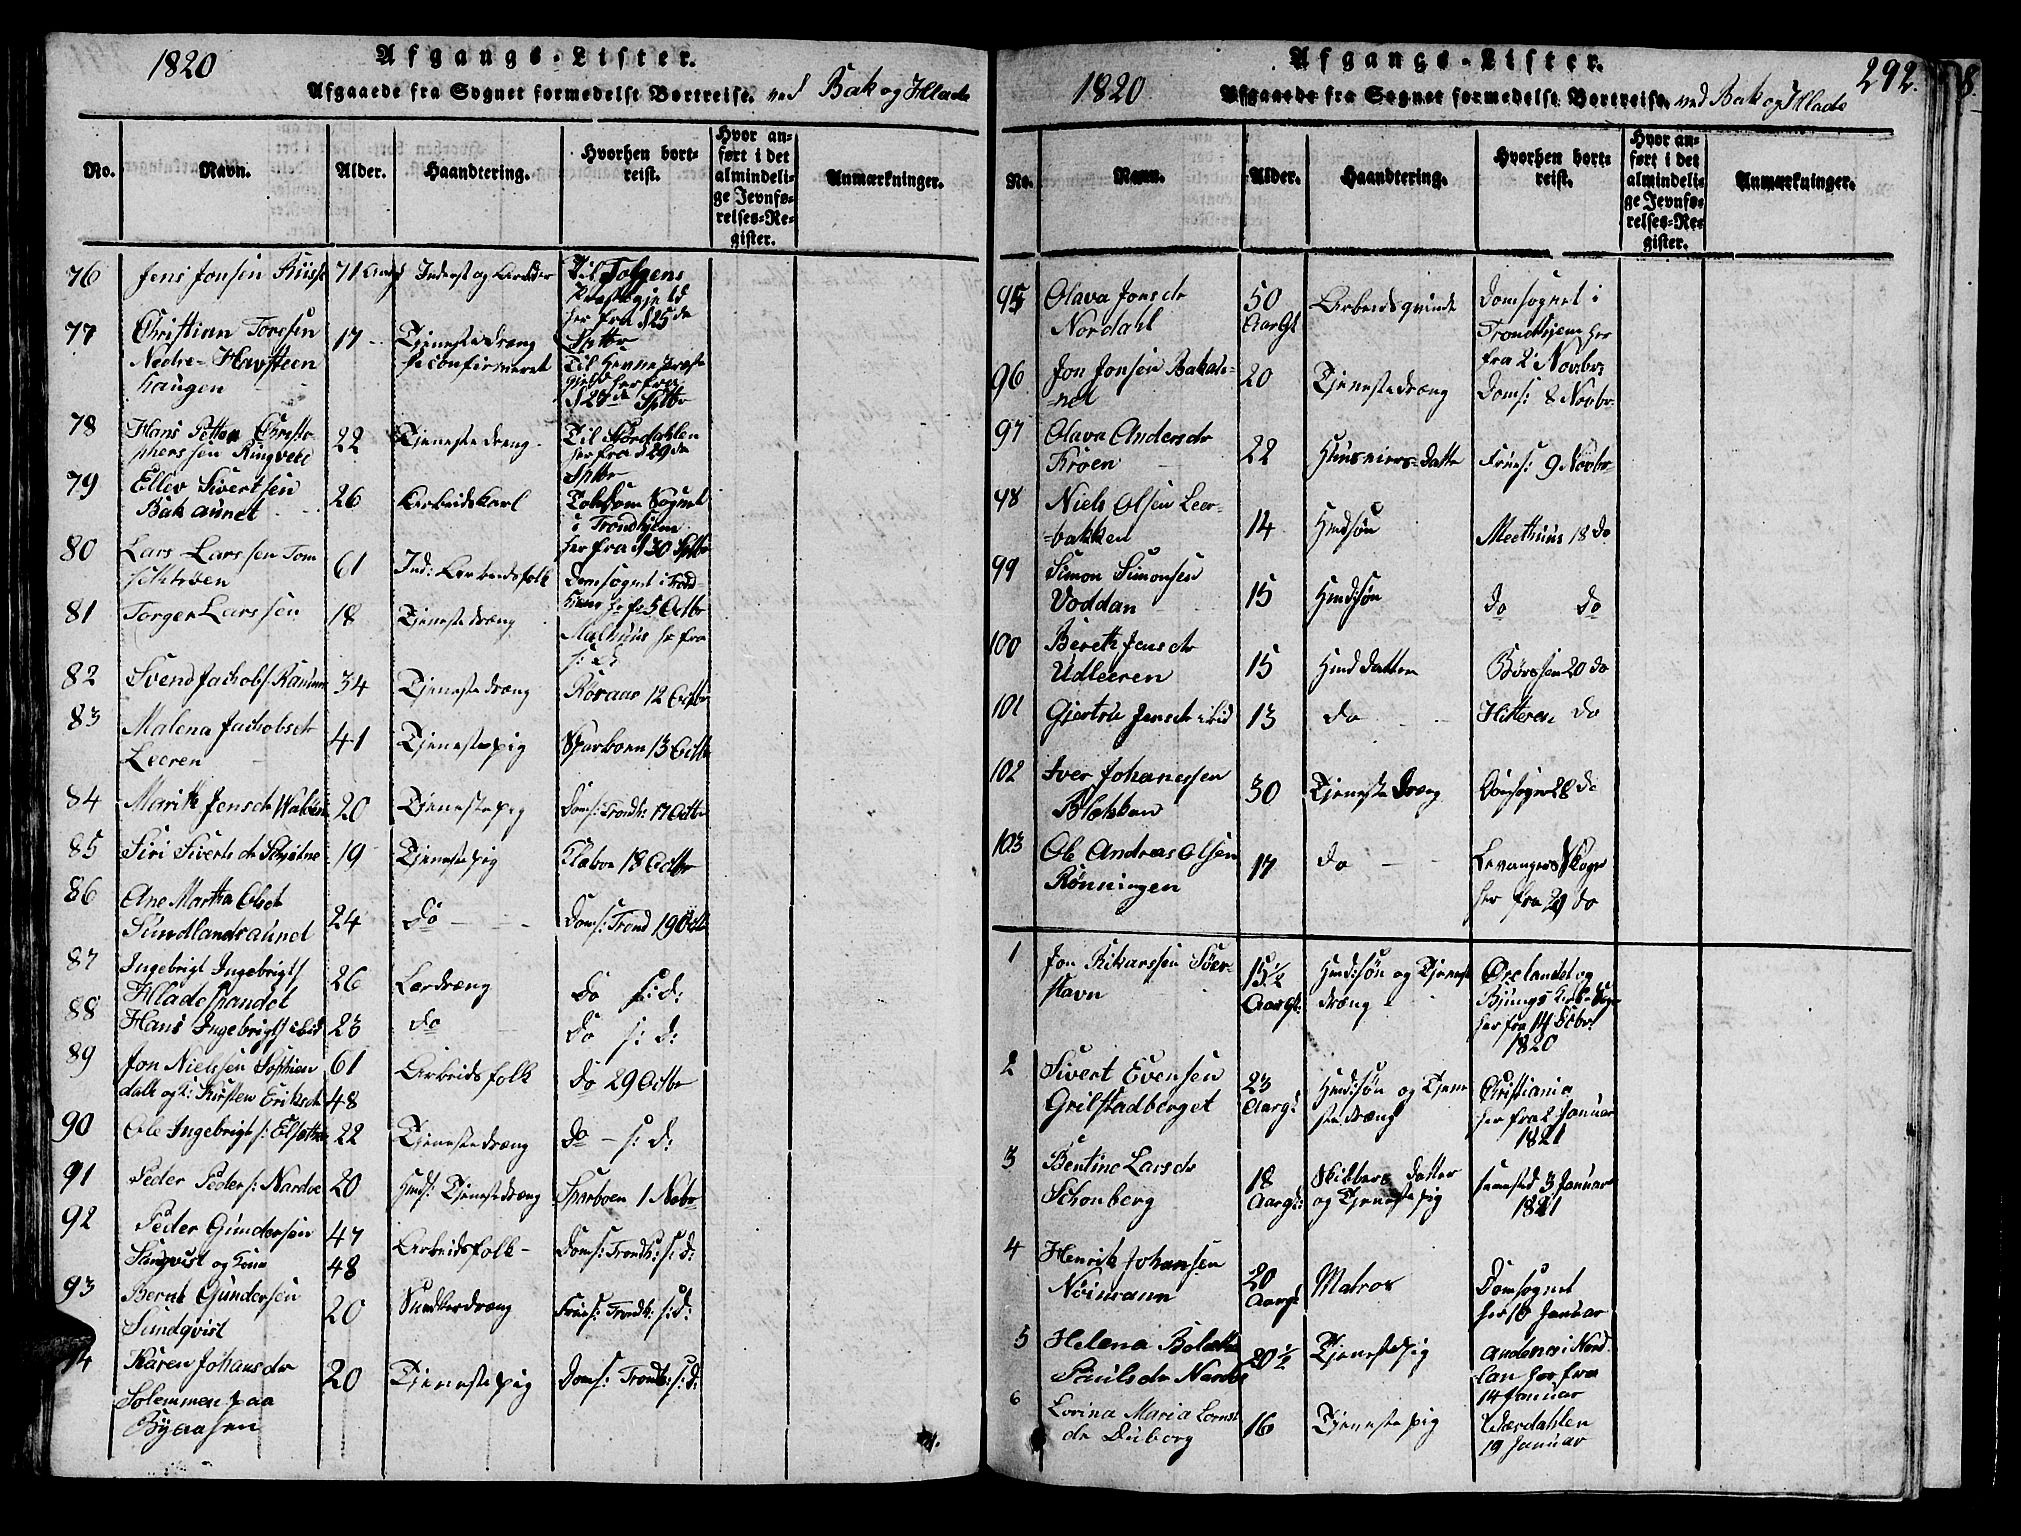 1820
Afgangs-Lister.
Afgaaede fra Sognet formedelst Bortreise. ved Bak og Hlade
No.
Navn.
Alder.
Haandtering.
Hvorhen bort-
reist.
Hvor an-
ført i det
almindeli-
ge Jevnfø-
relses-Re-
gister.
Anmærkninger.
76 Jens Jonsen 71 Inderst og Arbeider Til Tolgens
Præstegjeld
her fra d 25 de
Septbr
77 Christian Torssen 17 Tjenestedræng
Nedre-Havsteen
haugen
Til
her fra
d 27 de Sptbr
78 Hans Petter Christo
pherssen Ringvedl 22 Tjenestedreng Til Størdahlen
her fra d 29 de
Sptbr
79 Ellev Sivertsen
Bakaunet 26 Arbeidskarl Sognet
i Trondhjem
her fra d 30 Sptbr
80 Lars Larssen Tom 61 Ind: Arbeidsfolk Domsognet i Trond
hjem 5 Octbr
81 Torger Larssen 18 Tjenestedræng Malhuus hr fra
s: d:
82 Svend Jachobs: 34 Tjenestedræng Røraas 12 Octbr
83 Malena Jachobsdr
Leeren 41 Tjenestepig Sparboen 13 Octbr
84 Marith Jensdr 20 Tjenestepig Doms: Trondh: 17 Octbr
85 Siri Sivertsdr 19 Tjenestepig Klæboe 18 Octbr
86 Ane Martha Olsdt
Sundlandsaunet 24 Do Doms: Trond 19 Octbr
87 Ingebrigt Ingebrigts
Hladespandet 26 Lærdræng Do s: d:
88 Hans Ingebrigts ibid 23 do Do s: d:
89 Jon Nielssen Sophien
dahl og k: Kirsten Eriksdr 61
48 Arbeidsfolk Do 29 Octbr
90 Ole Ingebrigts: 22 Tjenestedræng Do - s: d:
91 Peder Peders: Nardoe 20 Hmds: Tjenestedræng Sparboen 1 Nobr
92 Peder Gundersen
Sundqvist og kone 47
48 Arbeidsfolk Doms: Trondh: s: d:
93 Bernt Gundersen
Sundqvist 20 Snedkerdræng Frues: Trondh: s: d:
94 Karen Johansdr
Solemmen paa
Byaasen 20 Tjenestepig Doms: Trondh: s: d:
1820
Afgangs-Lister.
292.
Afgaaede fra Sognet formedelst Bortreise. ved Bak og Hlade
No.
Navn.
Alder.
Haandtering.
Hvorhen bort-
reist.
Hvor an-
ført i det
almindeli-
ge Jevnfø-
relses-Re-
gister.
Anmærkninger.
95 Olava Jonsdr
Nordahl 50
Aar Gl Arbeidsqvinde Domsognet i
Trondhjem her
fra 2 Novbr
96 Jon Jonsen Bakau-
net 20 Tjenestedræng Doms: 8 Novbr
97 Olava Andersdr
Kroen 22 Huusmands-Datter Frues: 9 Novbr
98 Niels Olsen Leer-
bakken 14 Hmdsøn Meelhuus 18 do
99 Simon Simonsen
Voddan 15 Hmd:søn do do
100 Bereth Jensdr
Udleeren 15 Hmd datter Børssen 20 do
101 Gjertru Jensdr ibid 13 do Hitteren do
102 Iver Johanessen
Blekkan 30 Tjenestedræng Domsognet 28 do
103 Ole Andreas Olsen
Rønningen 17 do Levangers Skogn
her fra 29 do
1 Jon Rikarssen Sver-
stavn 15 1/2
Aargl: Hmd:søn og Tjeneste
dræng Ørelandet og
Bjungs Kirke Sogn
her fra 14 Octbr
1820
2 Sivert Evensen
Grilstadberget 23
Aargl Hmd:søn og Tjene
stedræng Christiania
her fra 2 Januar
1821
3 Bentine Larsdr
Schonberg 18
Aargl: Skibbers Datter
og Tjenestepig samested 3 Januar
1821
4 Henrik Johansen
Nøimann 20
Aargl Matros Domsognet
her 10 Januar
5 Helena Bolette
Paulsdr Nardoe 20 1/2 Tjenestepig Andenes i Nord
lan her fra
14 Januar
6 Lorina Maria Lornts
dr Duborg 16 Tjenestepig Værdahlen
19 Januar